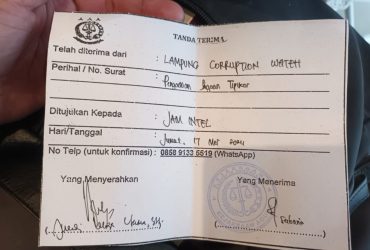 TANDA TERIMA
Telah diterima dari : LAMPUNG CORRUPTION WATCH
Perihal / No. Surat : Tipikor
Ditujukan Kepada : JAM INTEL
Hari/Tanggal : Jumat, 17 Mei 2024
No Telp (untuk konfirmasi) : 0858 9133 5519 (WhatsApp)
Yang Menyerahkan Yang Menerima